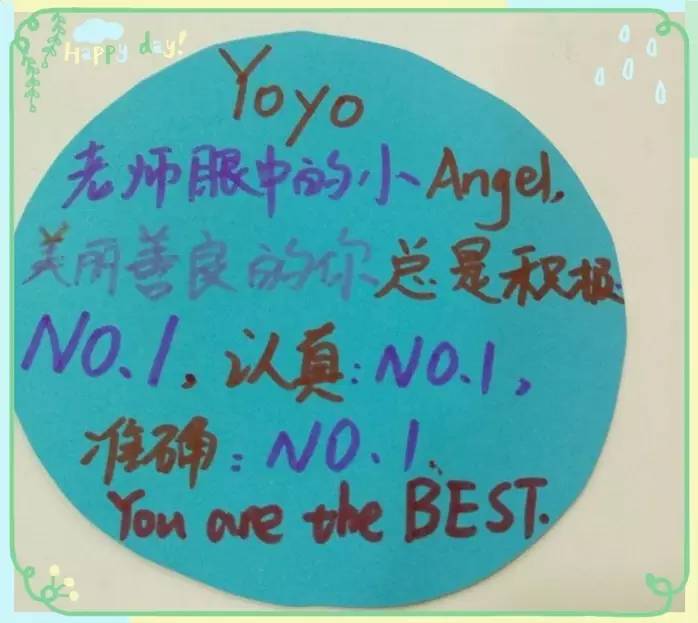 Happy day!
Yoyo
老师眼中的小Angel,
美丽善良的你总是积极:
NO.1, 认真:NO.1,
准确:NO.1.
You are the BEST.